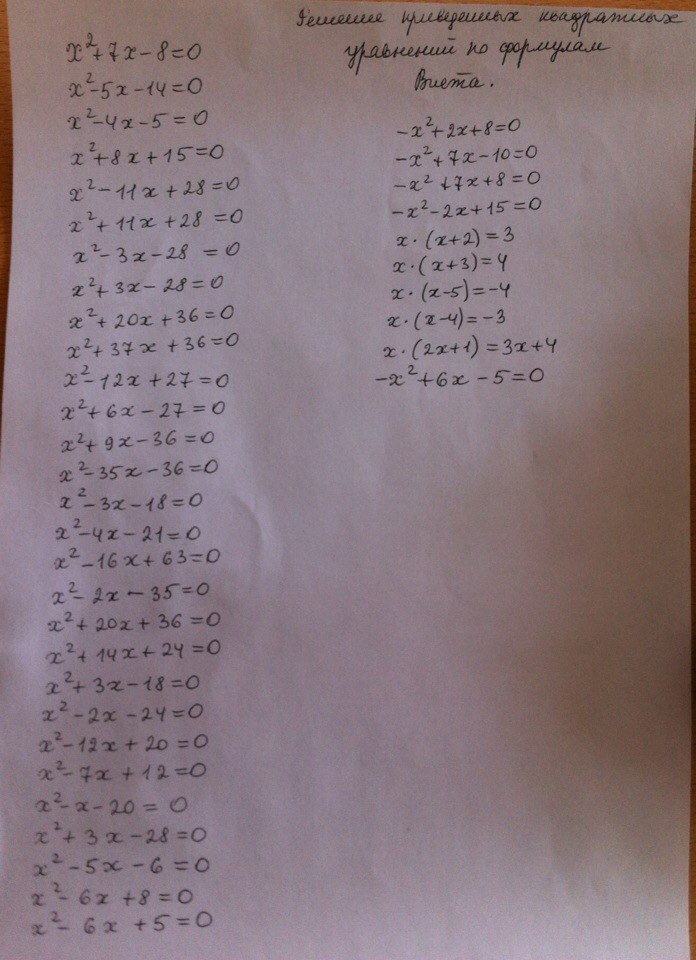 Решение приведенных квадратных
уравнений по формулам
Виета.
x²+7x-8=0
x²-5x-14=0
x²-4x-5=0
x²+8x+15=0
x²-11x+28=0
x²+11x+28=0
x²-3x-28=0
x²+3x-28=0
x²+20x+36=0
x²+37x+36=0
x²-12x+27=0
x²+6x-27=0
x²+9x-36=0
x²-35x-36=0
x²-3x-18=0
x²-4x-21=0
x²-16x+63=0
x²-2x-35=0
x²+20x+36=0
x²+14x+24=0
x²+3x-18=0
x²-2x-24=0
x²-12x+20=0
x²-7x+12=0
x²-x-20=0
x²+3x-28=0
x²-5x-6=0
x²-6x+8=0
x²-6x+5=0
-x²+2x+8=0
-x²+7x-10=0
-x²+7x+8=0
-x²-2x+15=0
x·(x+2)=3
x·(x+3)=4
x·(x-5)=-4
x·(x-4)=-3
x·(2x+1)=3x+4
-x²+6x-5=0